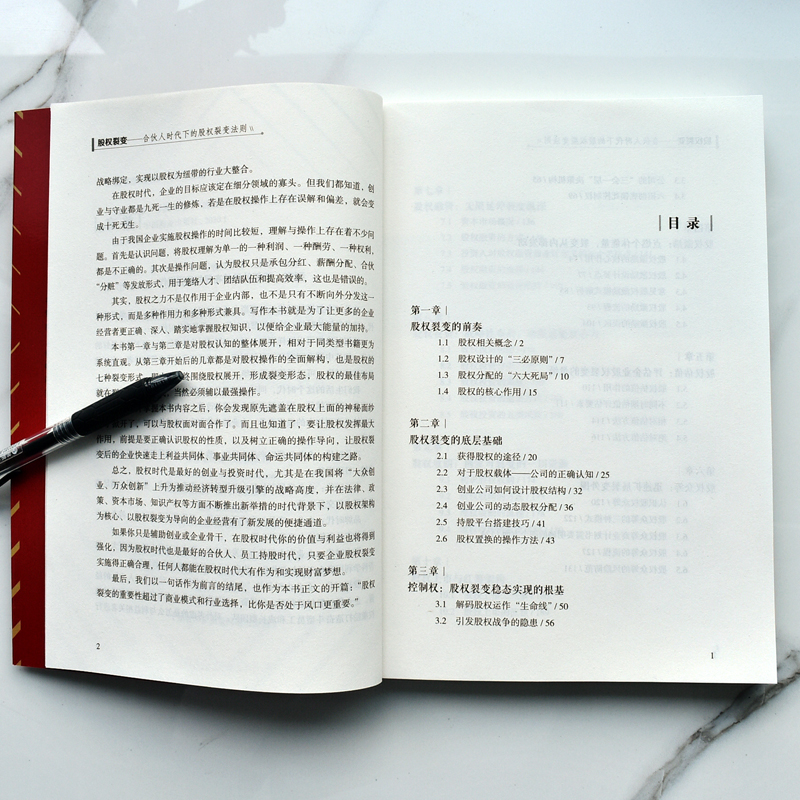 股权裂变——合伙人时代下的股权裂变法则
战略绑定，实现以股权为纽带的行业大整合。
在股权时代，企业的目标应该定在细分领域的寡头。但我们都知道，创
业与守业都是九死一生的修炼，若是在股权操作上存在误解和偏差，就会变
成十死无生。
由于我国企业实施股权操作的时间比较短，理解与操作上存在着不少问
题。首先是认识问题，将股权理解为单一的一种利润、一种酬劳、一种权利，
都是不正确的。其次是操作问题，认为股权只是承包分红、薪酬分配、合伙
“分赃”等发放形式，用于笼络人才、团结队伍和提高效率，这也是错误的。
其实，股权之力不是仅作用于企业内部，也不是只有不断向外分发这一
种形式，而是多种作用力和多种形式兼具。写作本书就是为了让更多的企业
经营者更正确、深入、踏实地掌握股权知识，以便给企业最大能量的加持。
本书第一章与第二章是对股权认知的整体展开，相对于同类型书籍更为
系统直观。从第三章开始后的几章都是对股权操作的全面解构，也是股权的
七种裂变形式，终围绕股权展开，形成裂变形态，股权的最佳布局
就在当然必须辅以最强操作。
本书内容之后，你会发现原先遮盖在股权上面的神秘面纱
了，可以与股权面对面合作了。而且也知道了，要让股权发挥最大
作用，前提是要正确认识股权的性质，以及树立正确的操作导向，让股权裂
变后的企业快速走上利益共同体、事业共同体、命运共同体的构建之路。
总之，股权时代是最好的创业与投资时代，尤其是在我国将“大众创
业、万众创新”上升为推动经济转型升级引擎的战略高度，并在法律、政
策、资本市场、知识产权等方面不断推出新举措的时代背景下，以股权架构
为核心、以股权裂变为导向的企业经营有了新发展的便捷通道。
如果你只是辅助创业或企业骨干，在股权时代你的价值与利益也将得到
强化，因为股权时代也是最好的合伙人、员工持股时代，只要企业股权裂变
实施得正确合理，任何人都能在股权时代大有作为和实现财富梦想。
最后，我们以一句话作为前言的结尾，也作为本书正文的开篇：“股权
裂变的重要性超过了商业模式和行业选择，比你是否处于风口更重要。”
2
目录
第一章
股权裂变的前奏
1.1 股权相关概念 / 2
1.2 股权设计的“三必原则” / 7
1.3 股权分配的“六大死局” / 10
1.4 股权的核心作用 / 15
第二章
股权裂变的底层基础
2.1 获得股权的途径 / 20
2.2 对于股权载体——公司的正确认知 / 25
2.3 创业公司如何设计股权结构 / 32
2.4 创业公司的动态股权分配 / 36
2.5 持股平台搭建技巧 / 41
2.6 股权置换的操作方法 / 43
第三章
控制权：股权裂变稳态实现的根基
3.1 解码股权运作“生命线” / 50
3.2 引发股权战争的隐患 / 56
1